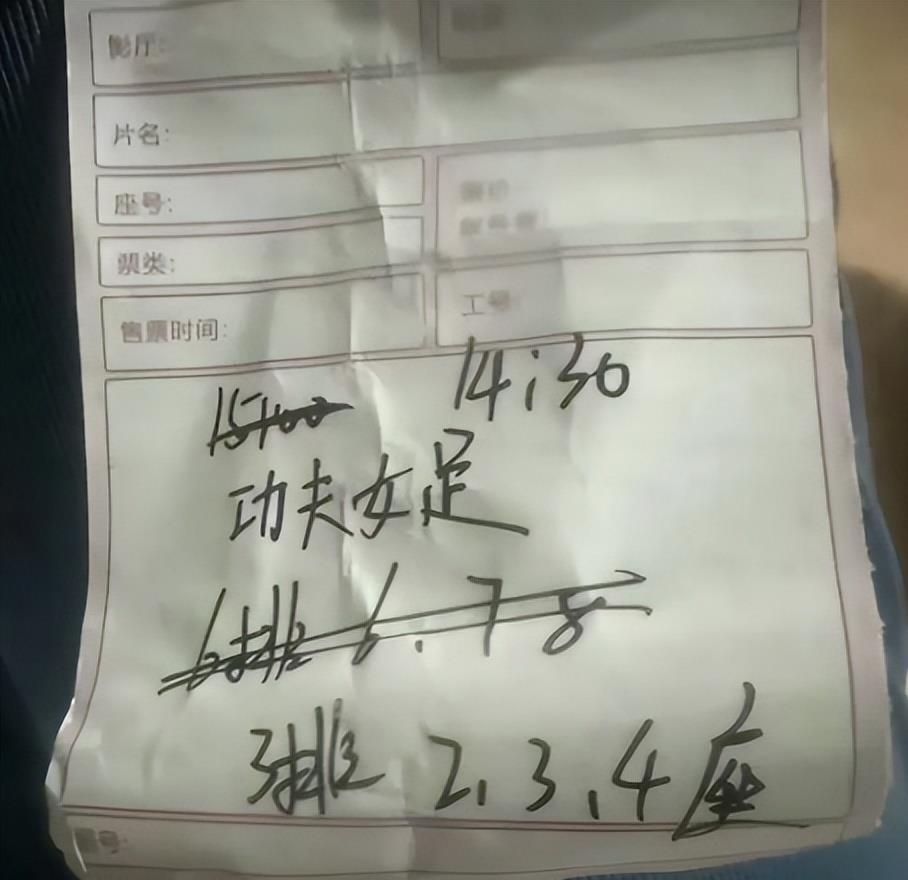 影厅:
片名:
座号:
票类:
工号:
售票时间:
15:00 14:30
功夫女足
6排 6.7 8
3排 2.3.4座